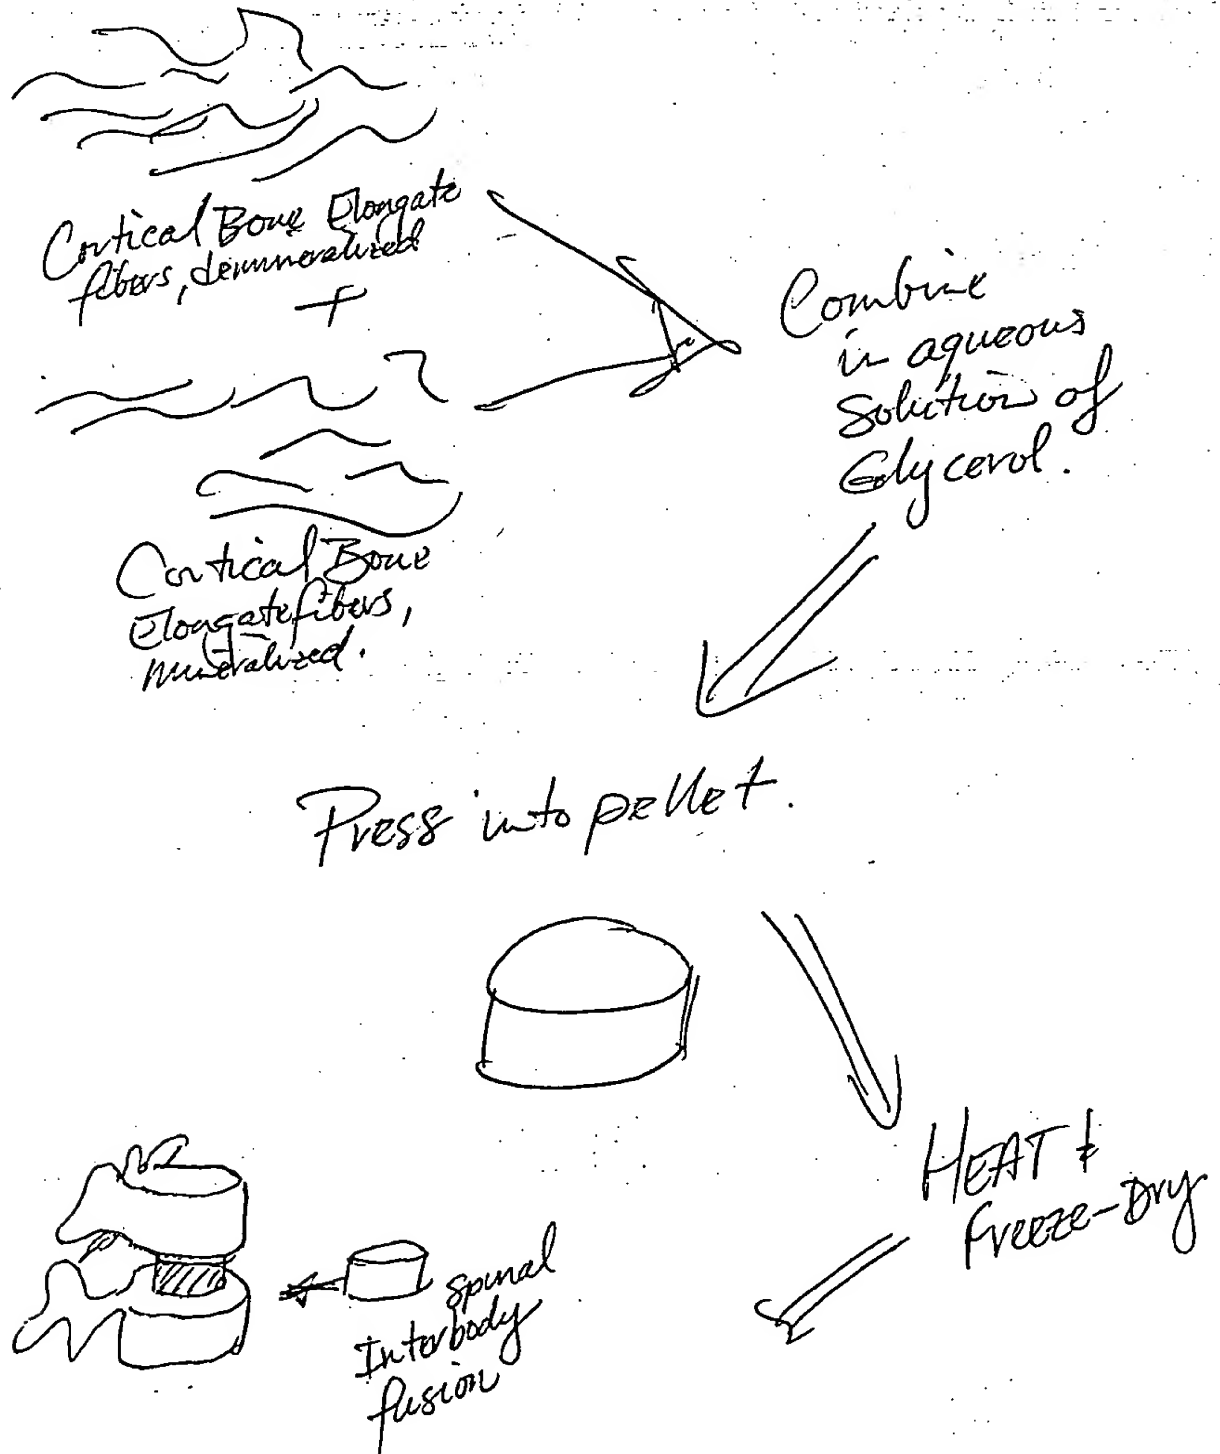 Cortical Bone Elongate
fibers, demineralized
+
Cortical Bone
Elongate fibers,
mineralized.
Combine
in aqueous
Solution of
Glycerol.
Press into pellet.
HEAT &
freeze-Dry
Spinal
Interbody
fusion